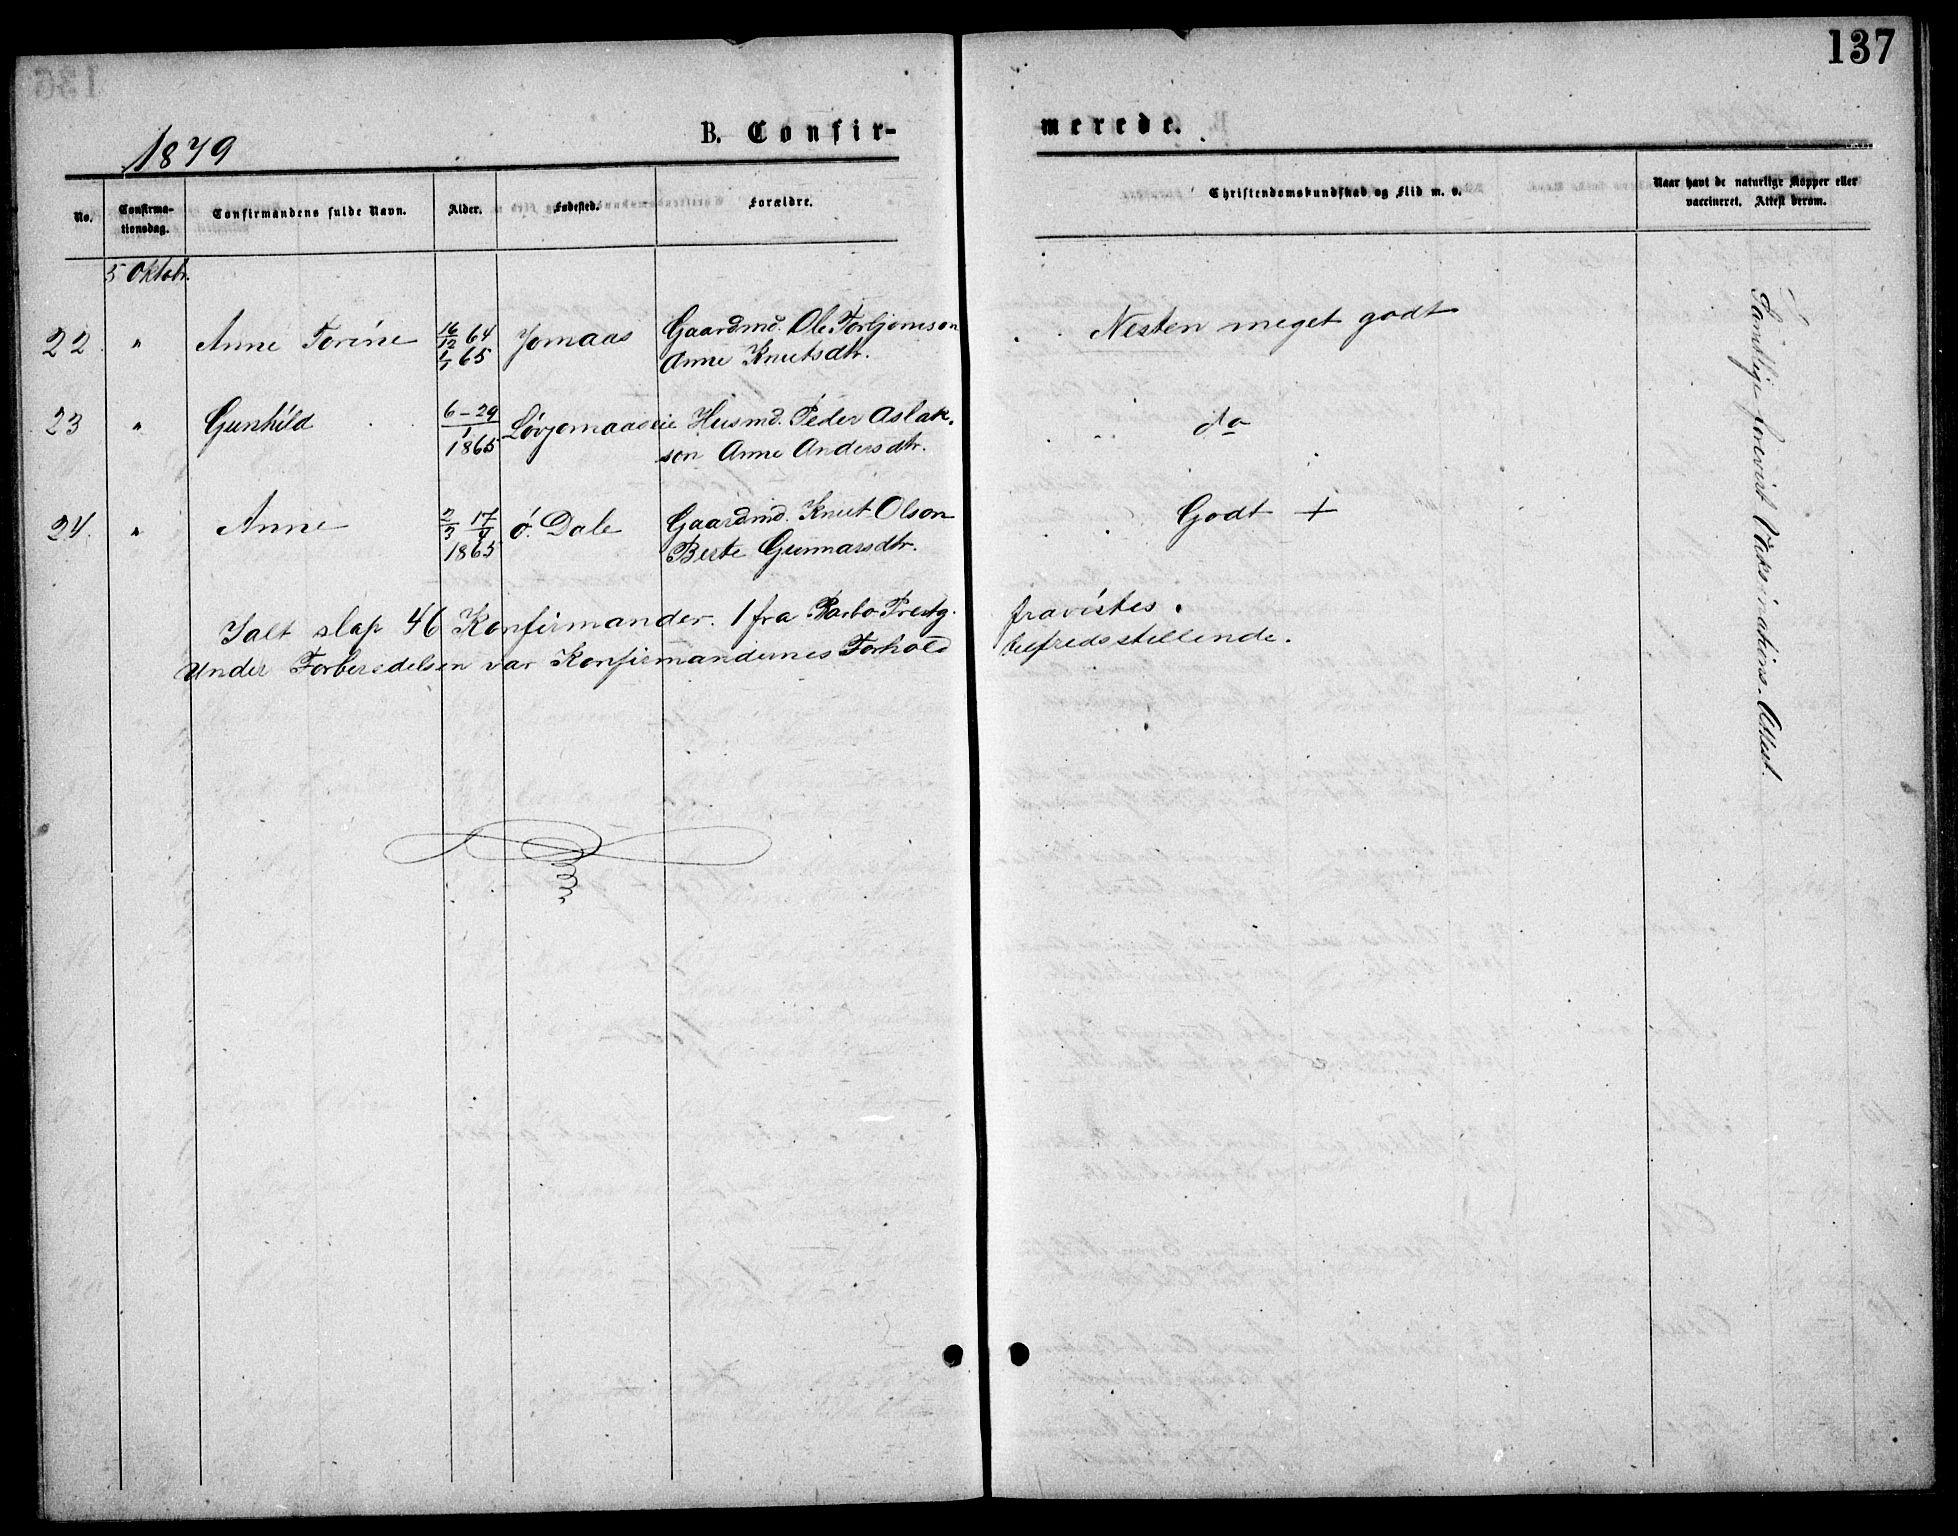 137
1879
B. Confir-
merede.
No.
Confirma-
tionsdag.
Confirmandens fulde Navn.
Alder.
Fødested.
Forældre.
Christendomskundskab og Flid m. v.
Naar havt de naturlige Kopper eller
vaccineret. Attest derom.
5 Oktobr.
22 " Anne Torine 16/12 64 Jomaas Gaardmd. Ole Torbjornson Nesten meget godt
65 Anne Knutsdtr.
23 " Gunhild 6 – 29 Løvjomaaseie Husmd. Peder Aslak- do
1
1865 son Anne Andersdtr.
24. " Anne 2/3 17/4 ø. Dale Gaardmd. Knut Olson Godt +
1865 Berte Gunnarsdtr.
Ialt slap 46 Konfirmander. 1 fra Barbo Prestg. fravistes.
Under Forberedelsen var Konfirmandernes Forhold tilfredsstillende.
Samtlige forevist Vaksinations-Attest.